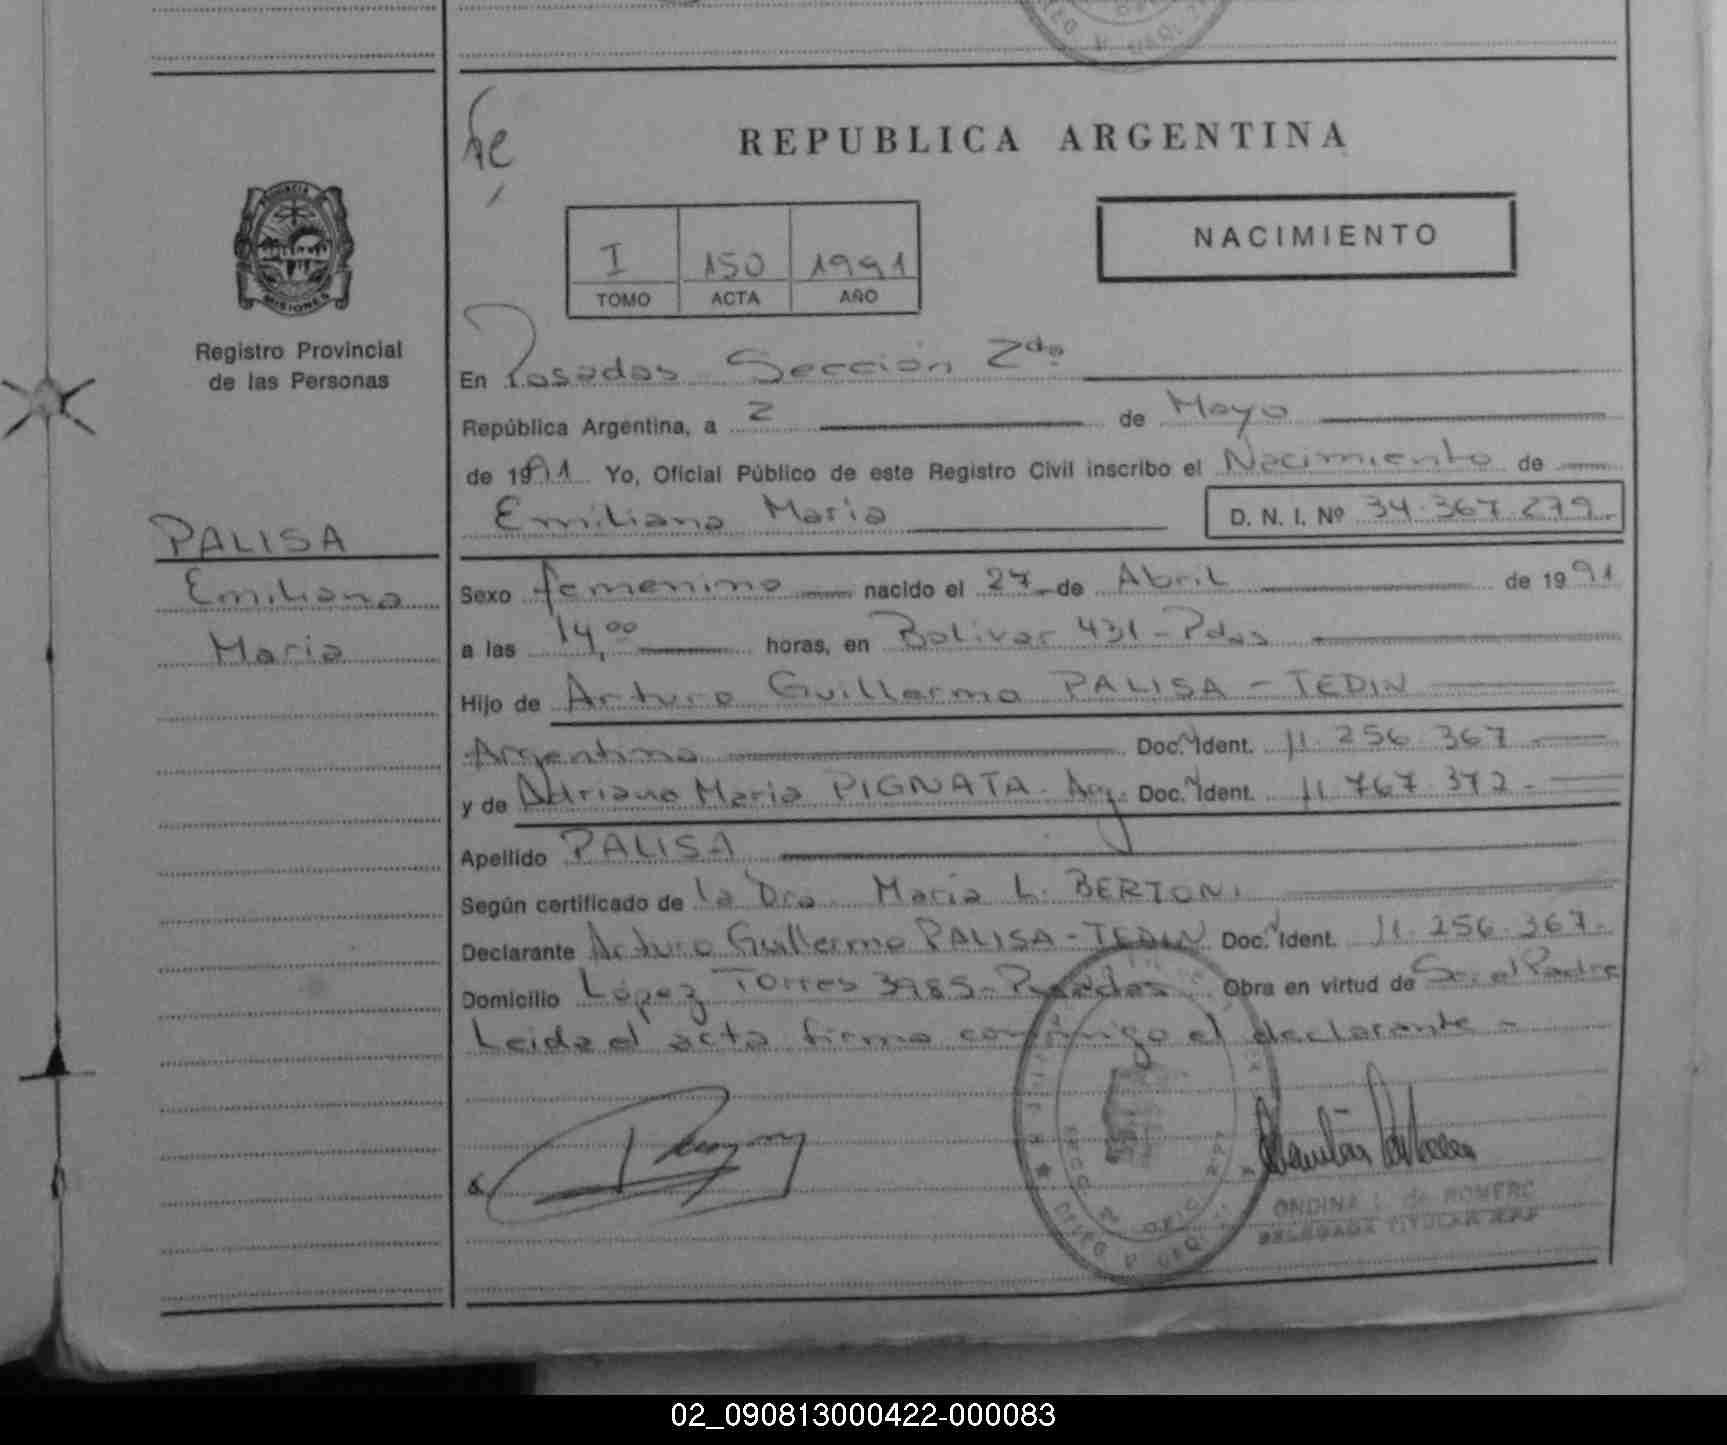 REPUBLICA ARGENTINA
PROVINCIA
MISIONES
Registro Provincial
de las Personas
I 150 1991
TOMO ACTA AÑO
NACIMIENTO
En Posadas Sección 2da
República Argentina, a 2 de Mayo
de 1991 Yo, Oficial Público de este Registro Civil inscribo el Nacimiento de
Emiliana Maria D. N. I. Nº 34.367.279
PALISA
Emiliana
Maria
Sexo femenino nacido el 27 de Abril de 1991
a las 14,00 horas, en Bolivar 431 - Pdas
Hijo de Arturo Guillermo PALISA - TEDIN
Argentino Doc. Ident. 11.256.367
y de Adriana Maria PIGNATA. Arg. Doc. Ident. 11.767.372.-
Apellido PALISA
Según certificado de la Dra. Maria L. BERTONI
Declarante Arturo Guillermo PALISA - TEDIN Doc. Ident. 11.256.367.-
Domicilio López Torres 3985 - Posadas Obra en virtud de Ser el Padre
Leida el acta firma conmigo el declarante -
ONDINA de ROMERO
DELEGADA TITULAR
02_090813000422-000083